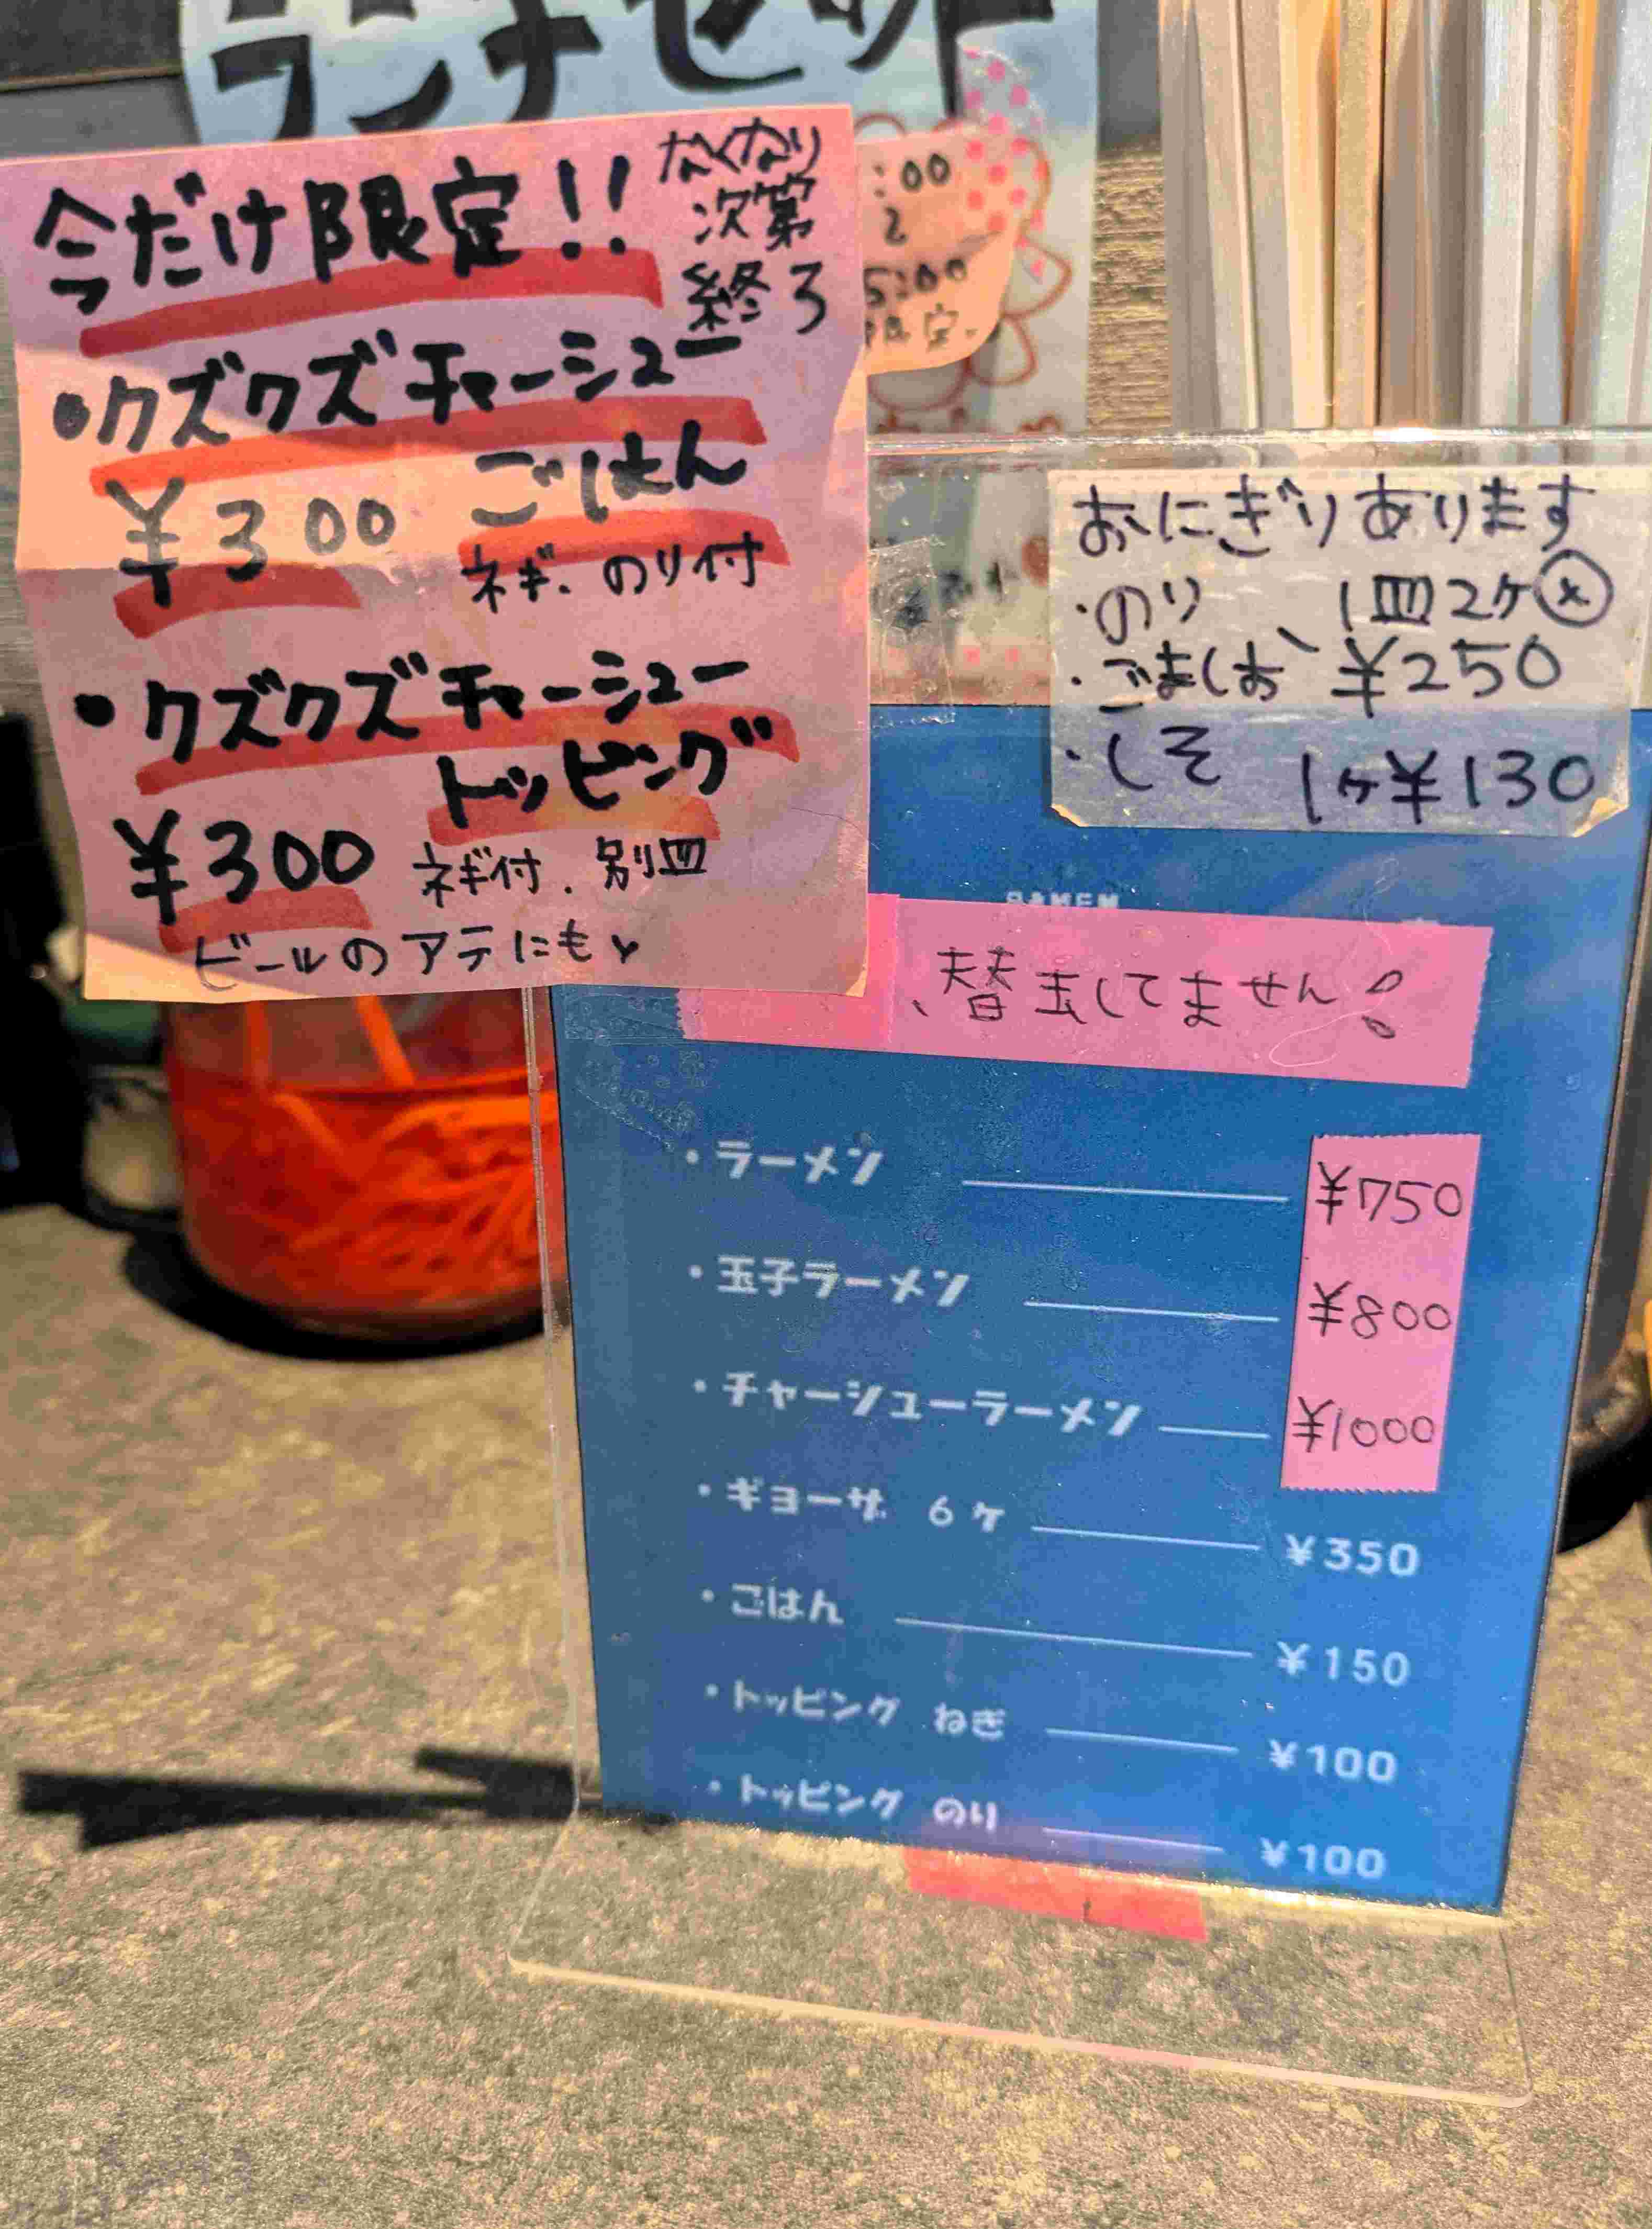 ランチセット
今だけ限定!!
なくなり
次第
終了
・クズクズチャーシュー
ごはん
¥300
ネギ、のり付
・クズクズチャーシュー
トッピング
¥300
ネギ付、別皿
ビールのアテにも
:00
5:00
限定.
おにぎりあります
・のり 1皿2ケ
・ごましお ¥250
・しそ 1ケ¥130
RAMEN
、替玉してません!
・ラーメン ¥750
・玉子ラーメン ¥800
・チャーシューラーメン ¥1000
・ギョーザ 6ケ ¥350
・ごはん ¥150
・トッピング ねぎ ¥100
・トッピング のり ¥100